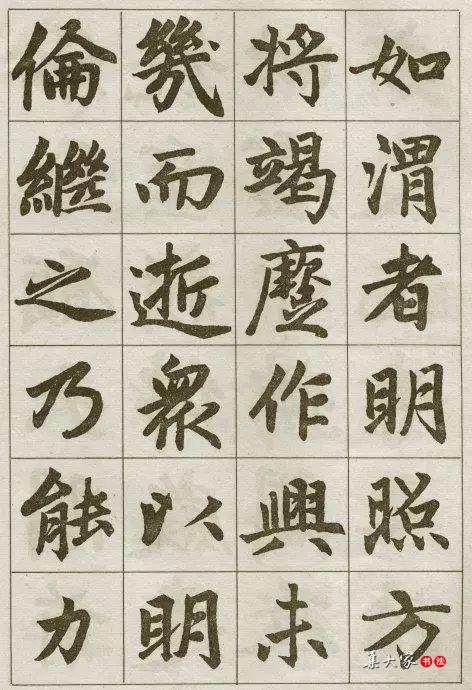 如渭者明照方
将竭作興未
幾而逝衆以明
倫繼之乃能力
集大家书法